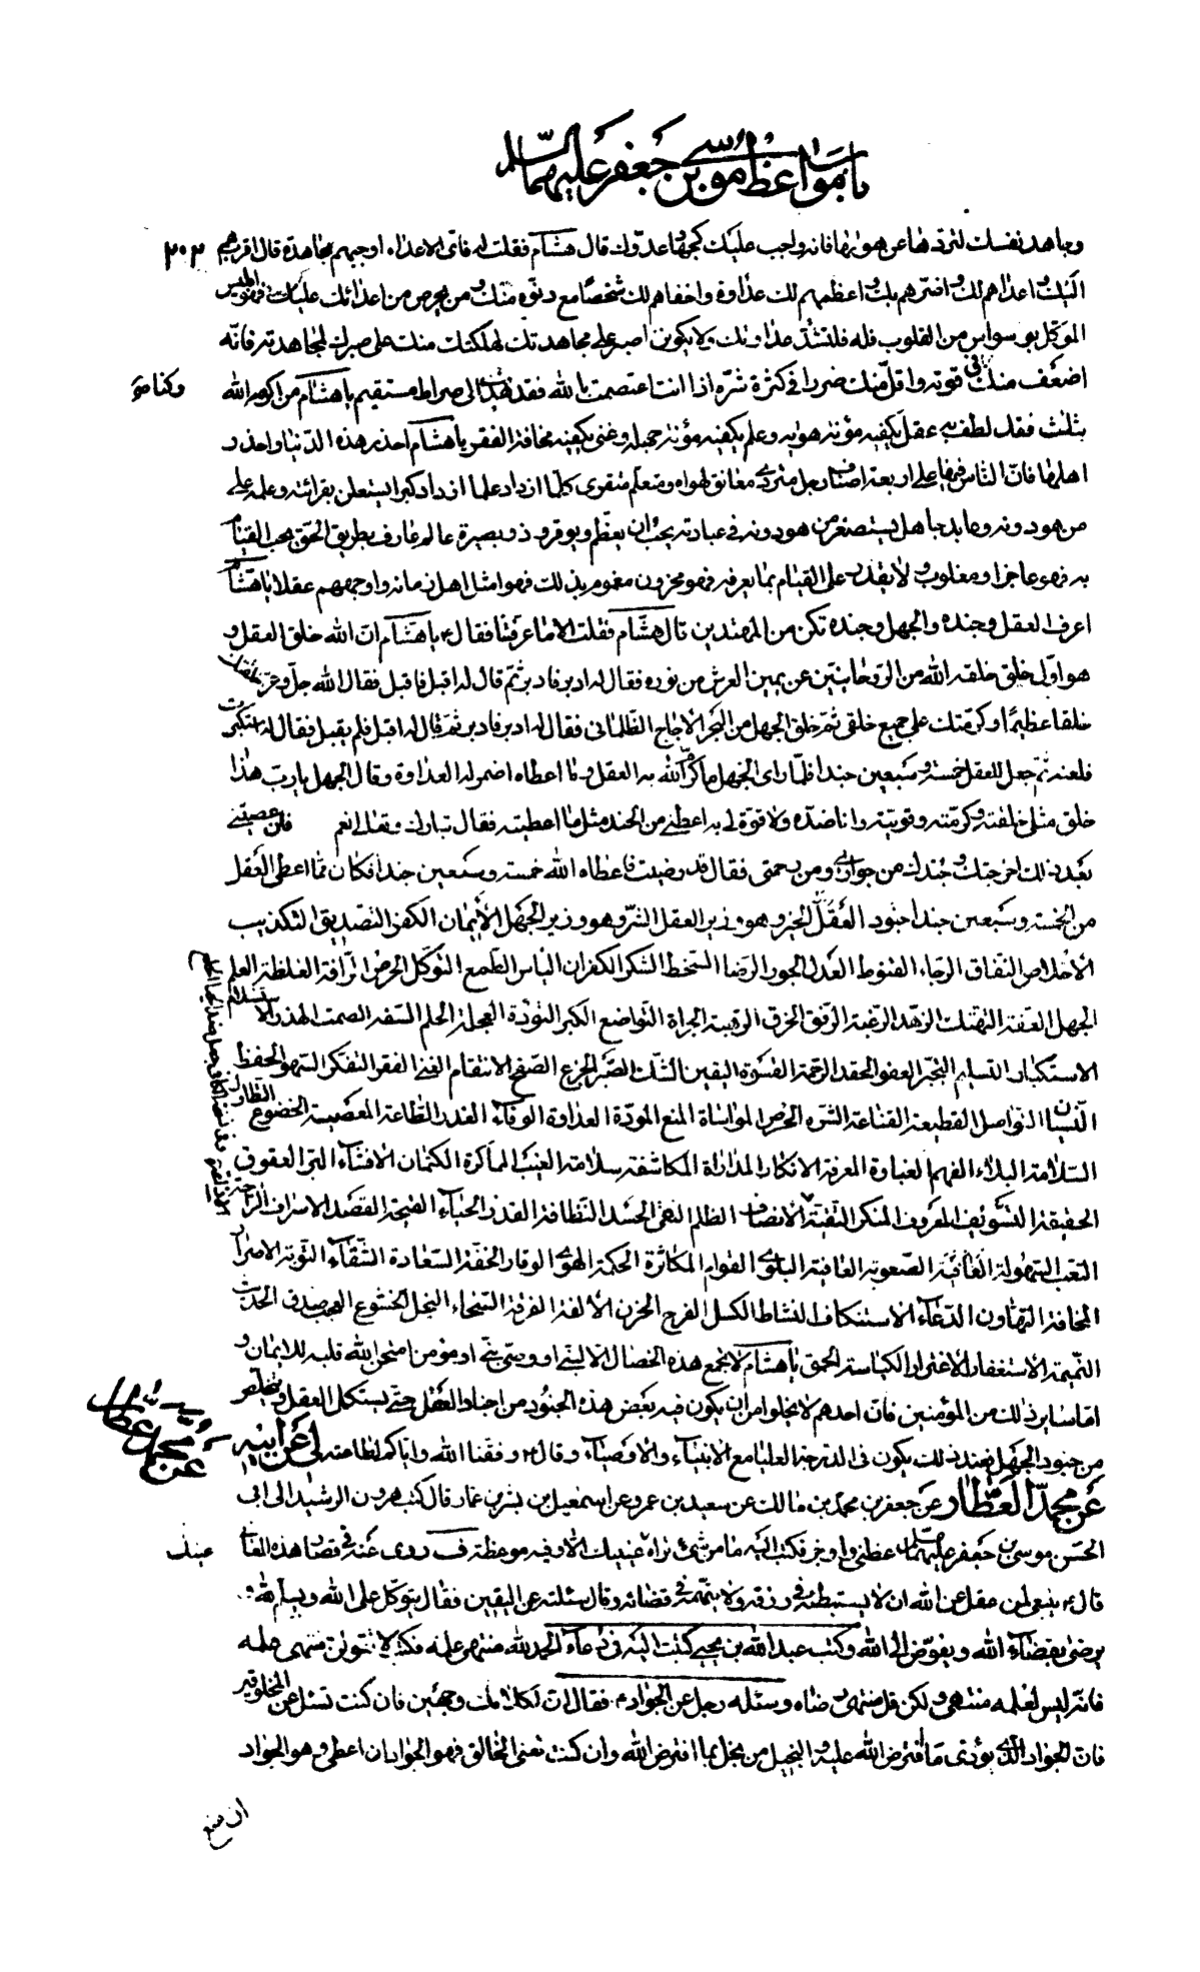 باب مواعظ موسى بن جعفر عليهما السلام
٢٠٢
وجاهد نفسك لتردها عن هواها فانه واجب عليك كجهاد عدوك قال هشام فقلت له فاى الاعداء اوجبهم مجاهدة قال اقربهم
اليك واعداهم لك واضرهم بك واعظمهم لك عداوة واخفاهم لك شخصا مع دنوه منك ومن يحرص من اعدائك عليك فهو ابليس
الموكل بوسواس من القلوب فله فلتشتد عداوتك ولا يكونن اصبر على مجاهدتك لهلكتك منك على صبرك لمجاهدته فانه
اضعف منك فى قوته واقل منك ضررا فى كثرة شره اذا انت اعتصمت بالله فقد هديت الى صراط مستقيم يا هشام من اكرمه الله
بثلث فقد لطف به عقل يكفيه مؤنة هواه وعلم يكفيه مؤنة جهله وغنى يكفيه مخافة الفقر يا هشام احذر هذه الدنيا واحذر
اهلها فان الناس فيها على اربعة اصناف رجل متردى معانق لهواه ومتعلم متقرى كلما ازداد علما ازداد كبرا يستعلن بقرائته وعلمه على
من هو دونه وعابد جاهل يستصغر من هو دونه فى عبادته يحب ان يعظم ويوقر وذو بصيرة عالم عارف بطريق الحق يحب القيام
به فهو عاجز او مغلوب ولا يقدر على القيام بما يعرفه فهو محزون مغموم بذلك فهو امثل اهل زمانه واوجههم عقلا يا هشام
اعرف العقل وجنده والجهل وجنده تكن من المهتدين قال هشام فقلت لا الا ما عرفتنا فقال ع يا هشام ان الله خلق العقل و
هو اول خلق خلقه الله من الروحانيين عن يمين العرش من نوره فقال له ادبر فادبر ثم قال له اقبل فاقبل فقال الله جل وعز خلقتك
خلقا عظيما وكرمتك على جميع خلقى ثم خلق الجهل من البحر الاجاج الظلمانى فقال له ادبر فادبر ثم قال له اقبل فلم يقبل فقال له استكبرت
فلعنه ثم جعل للعقل خمسة وسبعين جندا فلما راى الجهل ما كرم الله به العقل وما اعطاه اضمر له العداوة وقال الجهل يا رب هذا
خلق مثلى خلقته وكرمته وقويته وانا ضده ولا قوة لى به اعطنى من الجند مثل ما اعطيته فقال تبارك وتعالى نعم فان عصيتنى
بعد ذلك اخرجتك وجندك من جوارى ومن رحمتى فقال قد رضيت فاعطاه الله خمسة وسبعين جندا فكان مما اعطى العقل
من الخمسة وسبعين جندا جنود العقل الخير وهو وزير العقل الشر وهو وزير الجهل الايمان الكفر التصديق التكذيب
الاخلاص النفاق الرجاء القنوط العدل الجور الرضا السخط الشكر الكفران الياس الطمع التوكل الحرص الرافة الغلظة العلم
الجهل العفة التهتك الزهد الرغبة الرفق الخرق الرهبة الجراة التواضع الكبر التؤدة العجلة الحلم السفه الصمت الهذر الاستسلام
الاستكبار التسليم التجبر العفو الحقد الرحمة القسوة اليقين الشك الصبر الجزع الصفح الانتقام الغنى الفقر التفكر السهو الحفظ
النسيان التواصل القطيعة القناعة الشره الحرص المواساة المنع المودة العداوة الوفاء الغدر الطاعة المعصية الخضوع التطاول
السلامة البلاء الفهم الغباوة المعرفة الانكار المداراة المكاشفة سلامة الغيب المماكرة الكتمان الافشاء البر العقوق
الحقيقة التسويف المعروف المنكر التقية الانصاف الظلم النفى الحسد النظافة القذر الحياء القحة القصد الاسراف الراحة
التعب السهولة الصعوبة العافية البلوى القوام المكاثرة الحكمة الهوى الوقار الخفة السعادة الشقاء التوبة الاصرار
المخافة التهاون الدعاء الاستنكاف النشاط الكسل الفرح الحزن الالفة الفرقة السخاء البخل الخشوع العجب صدق الحديث
النميمة الاستغفار الاغترار الكياسة الحمق يا هشام لا تجمع هذه الخصال الا لنبى او وصى نبى او مؤمن امتحن الله قلبه للايمان و
اما سائر ذلك من المؤمنين فان احدهم لا يخلوا من ان يكون فيه بعض هذه الجنود من اجناد العقل حتى يستكمل العقل ويتخلص
من جنود الجهل فعند ذلك يكون فى الدرجة العليا مع الانبياء والاوصياء وقال ع وفقنا الله واياكم لطاعته لى عن ابيه
عن محمد العطار عن جعفر بن محمد بن مالك عن سعيد بن عمرو عن اسمعيل بن بشر بن عمار قال كتب هرون الرشيد الى ابى
الحسن موسى بن جعفر عليهما السلام عظنى واوجز فكتب اليه ما من شئ تراه عينيك الا وفيه موعظة ف روى عنه فى قصار هذه المعانى
قال ع ينبغى لمن عقل عن الله ان لا يستبطئه فى رزقه ولا يتهمه فى قضائه وقال سئلته عن اليقين فقال يتوكل على الله ويسلم لله و
يرضى بقضاء الله ويفوض الى الله وكتب عبد الله بن يحيى كتبت اليه فى دعاء الحمد لله منتهى علمه فكتب لا تقولن منتهى علمه
فانه ليس لعلمه منتهى ولكن قل منتهى رضاه وسئله رجل عن الجواد ع فقال ان لكلامك وجهين فان كنت تسئل عن المخلوقين
فان الجواد الذى يؤدى ما افترض الله عليه والبخيل من بخل بما افترض الله وان كنت تعنى الخالق فهو الجواد ان اعطى وهو الجواد
ان منع
عن محمد العطار
عينك